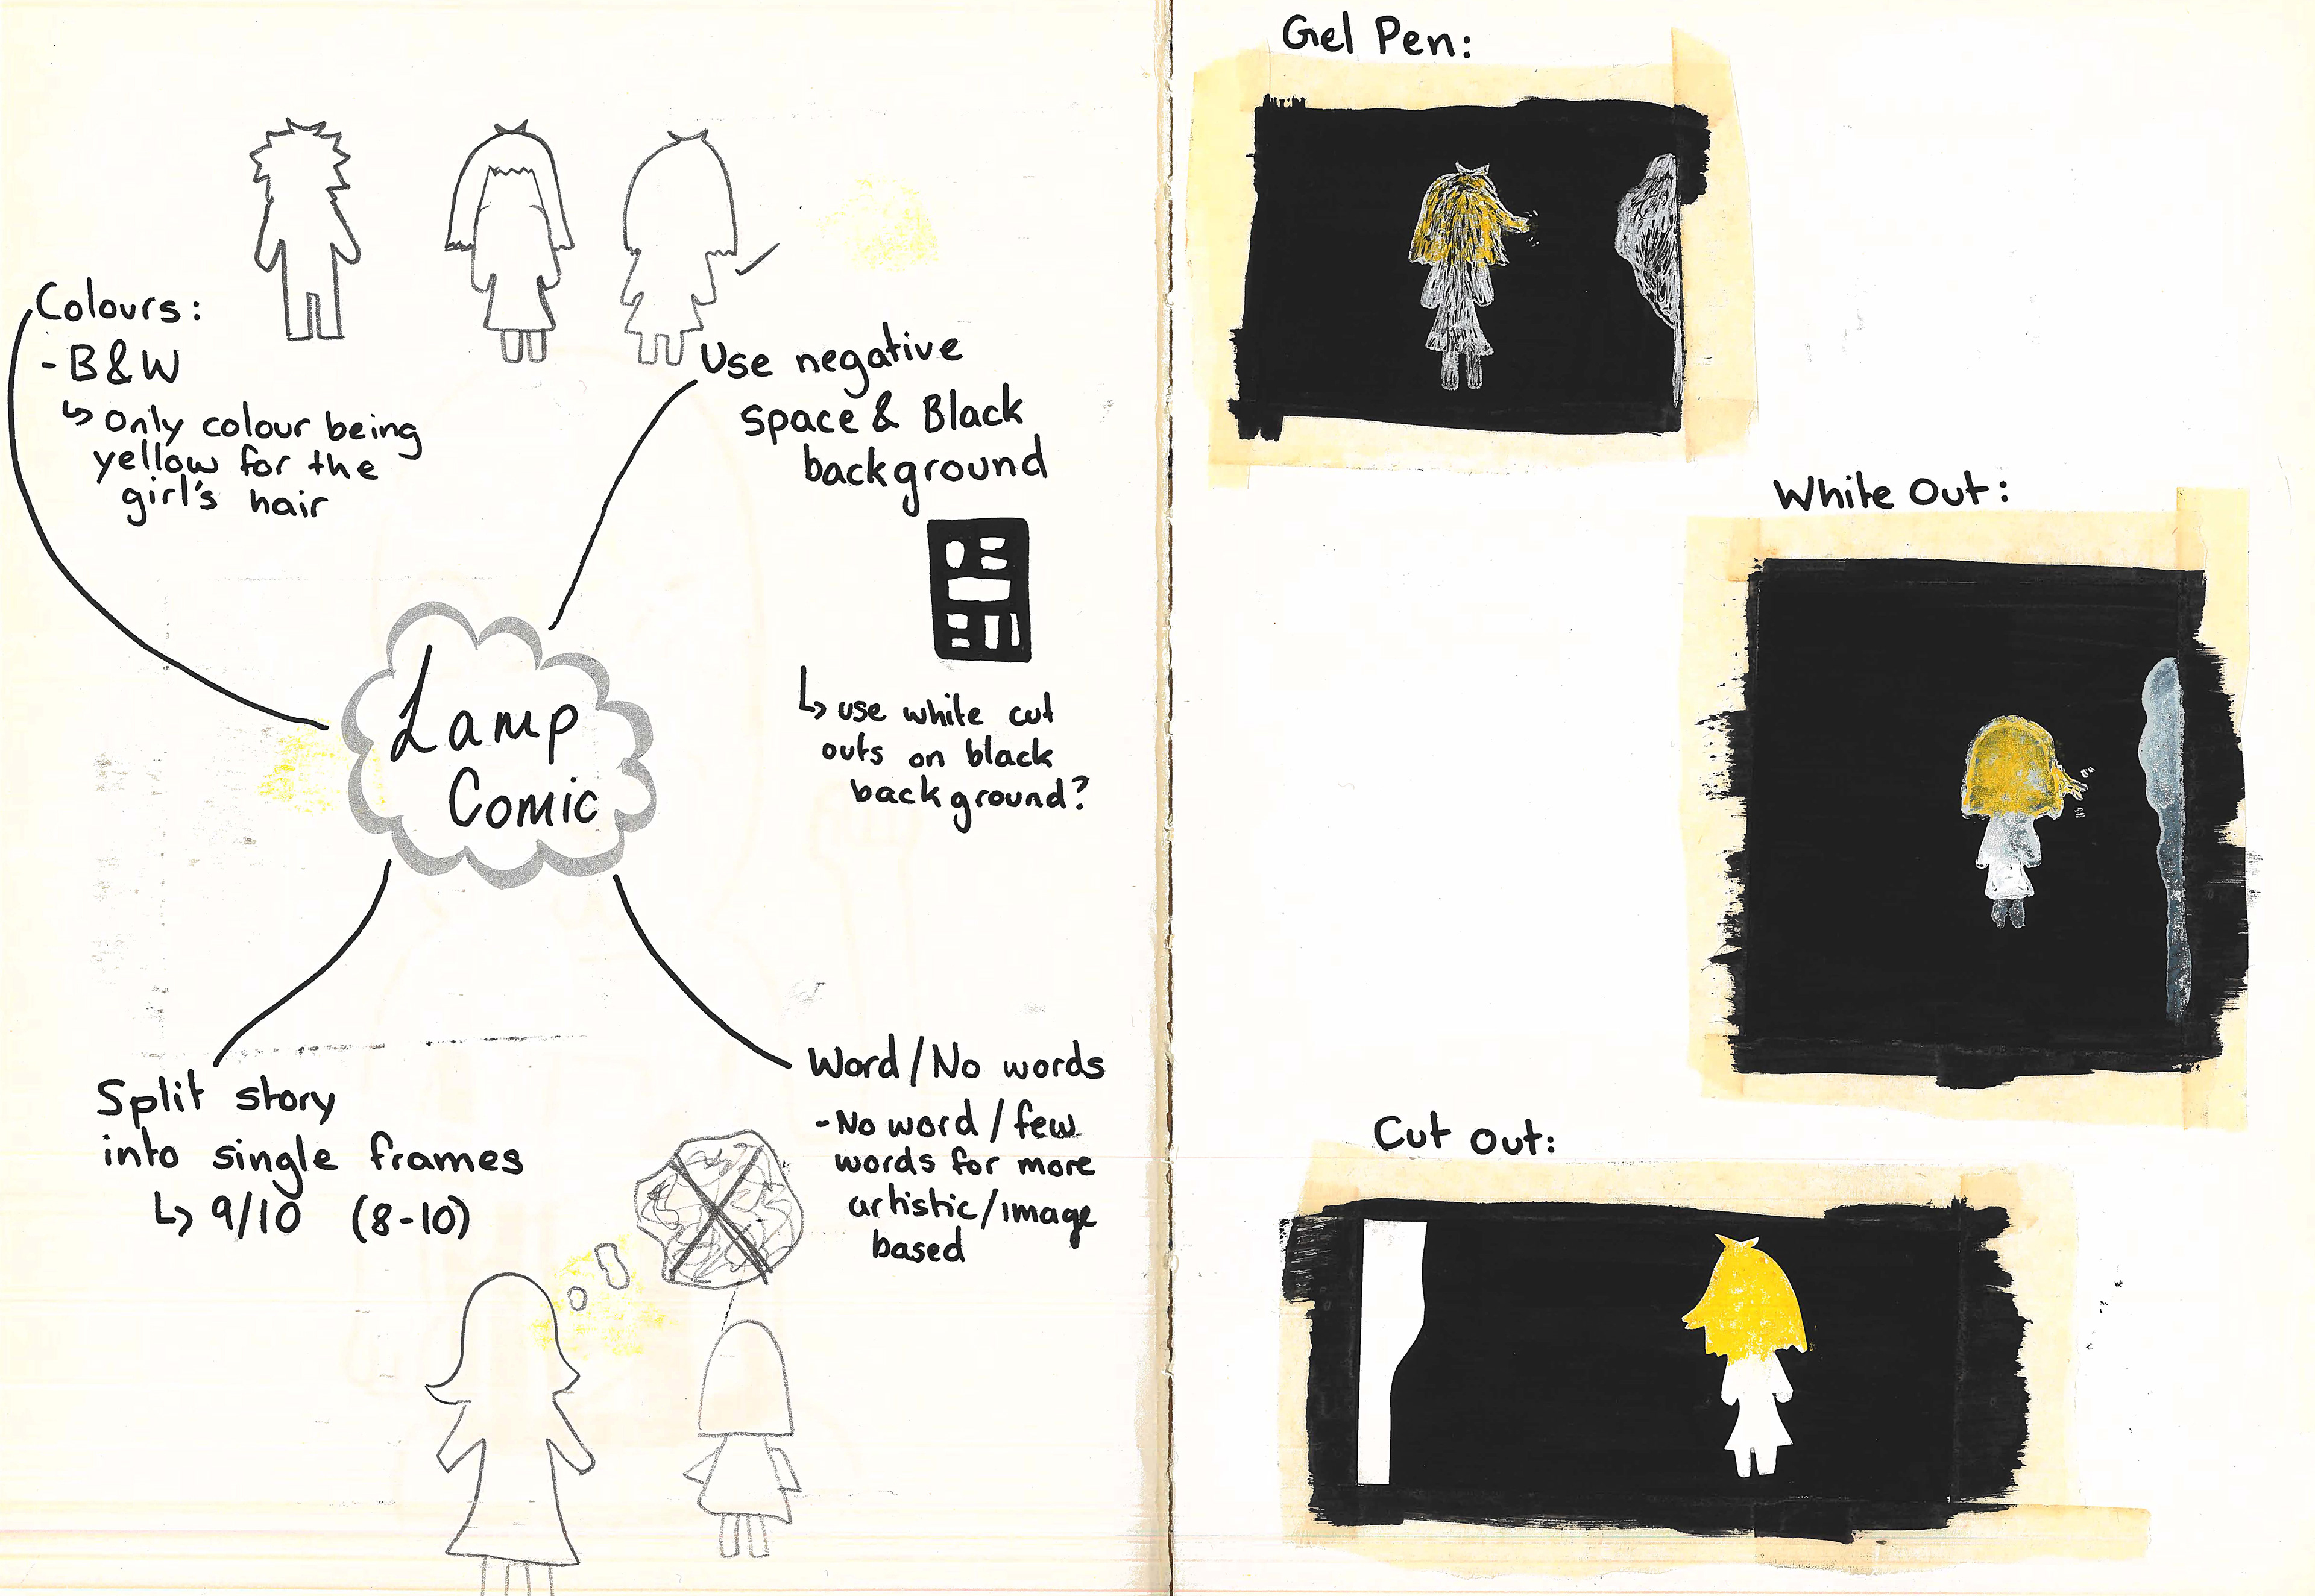 Colours:
- B&W
↳ only colour being
yellow for the
girl's hair
Use negative
space & Black
background
↳ use white cut
outs on black
background?
Lamp
Comic
Split story
into single frames
↳ 9/10 (8-10)
Word/No words
- No word/few
words for more
artistic/image
based
Gel Pen:
White Out:
Cut Out: